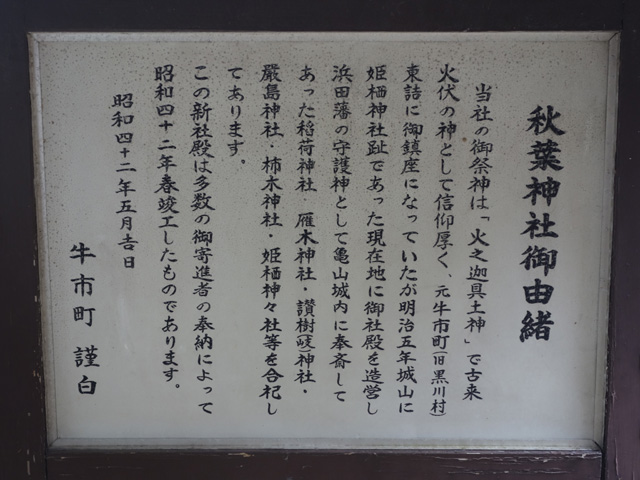 秋葉神社御由緒
当社の御祭神は「火之迦具土神」で古来
火伏の神として信仰厚く、元牛市町(旧黒川村)
東詰に御鎮座になっていたが明治五年城山に
姫栖神社趾であった現在地に御社殿を造営し
浜田藩の守護神として亀山城内に奉斎して
あった稲荷神社・雁木神社・讃樹岐神社・
厳島神社・柿木神社・姫栖神々社等を合祀し
てあります。
この新社殿は多数の御寄進者の奉納によって
昭和四十二年春竣工したものであります。
昭和四十二年五月吉日
牛市町 謹白